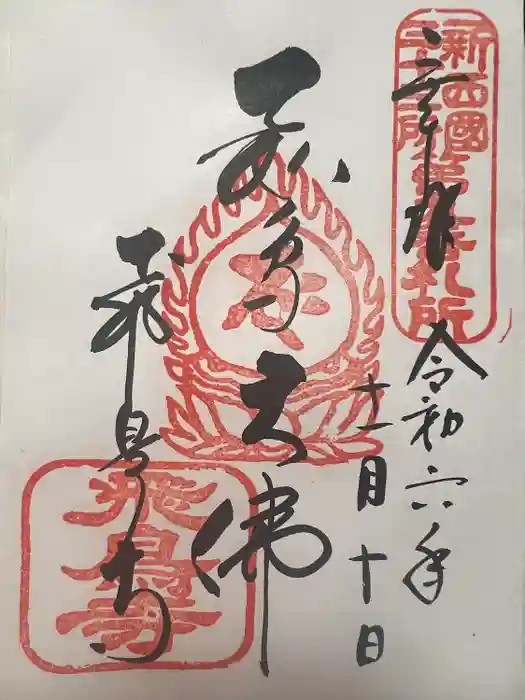 新西國
三十三所
第九札所
奉拝
令和六年
十一月十日
飛鳥大佛
飛鳥寺
飛鳥寺